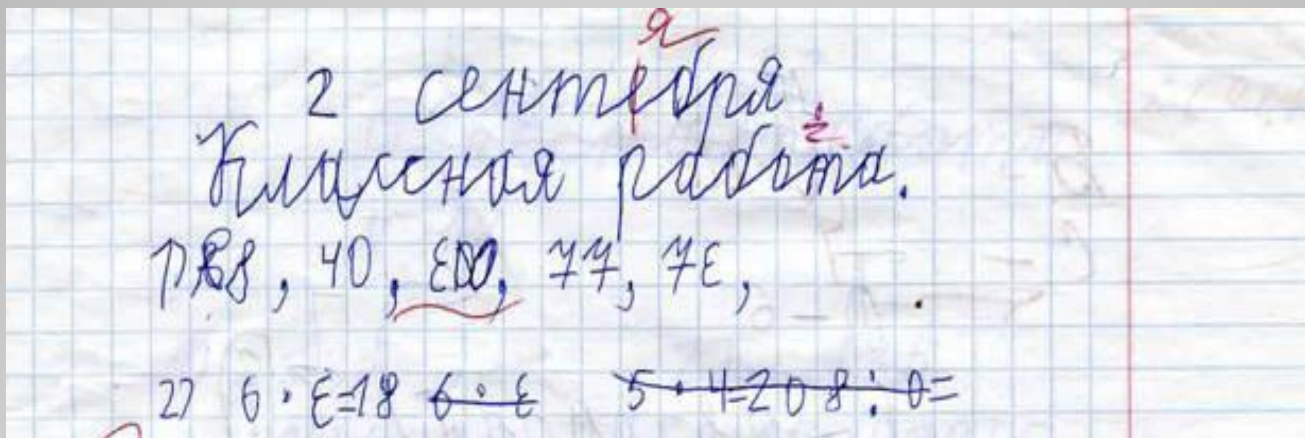 я
2 сентебря
Классная работа.
1) 88, 40, Ɛ00, 77, 7Ɛ,
2) 6 · Ɛ=18 6 · Ɛ 5 · 4=20 8 : 0=